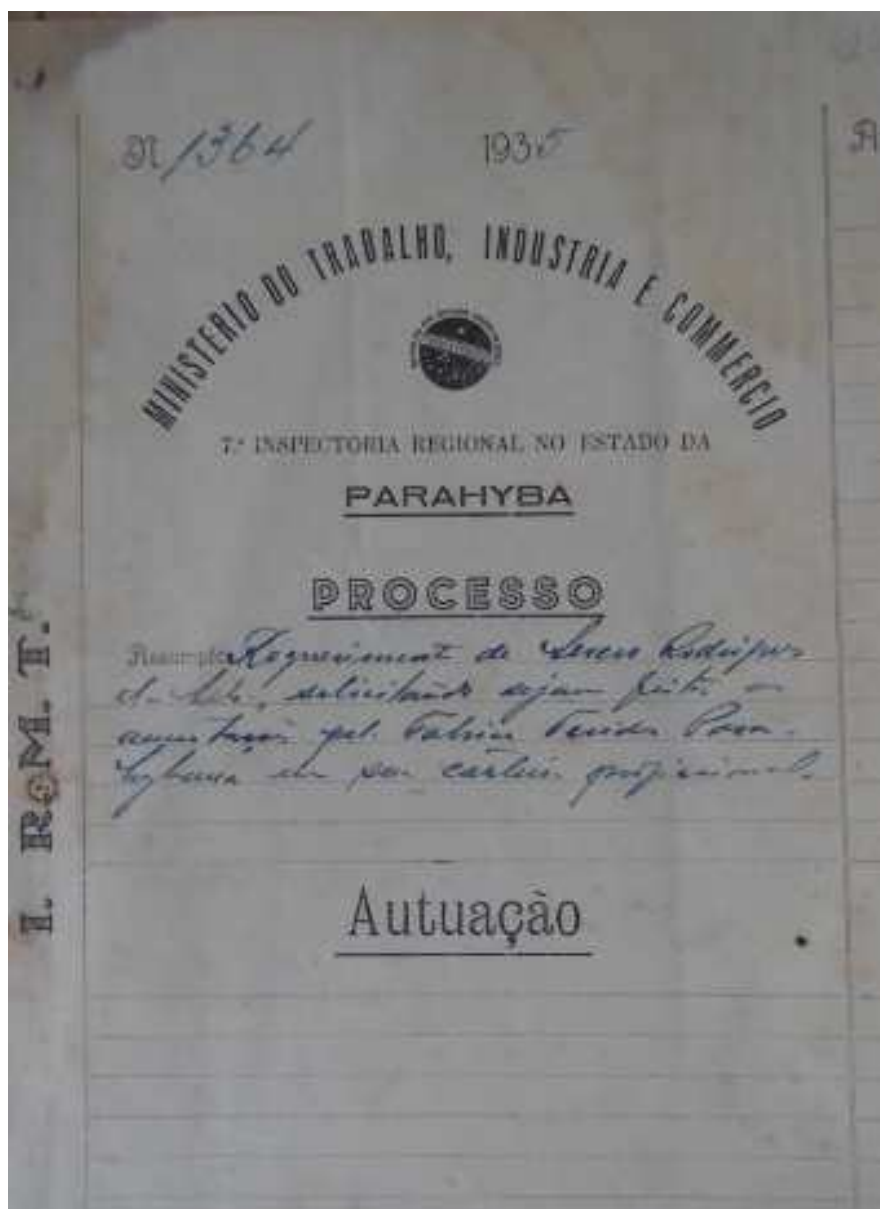 N 1364 1935
MINISTERIO DO TRABALHO, INDUSTRIA E COMMERCIO
7.ª INSPECTORIA REGIONAL NO ESTADO DA
PARAHYBA
PROCESSO
Assumpto Requeriment de Rodrigues
solicitando sejam feita
pel. Fabrica Tecidos Para-
hybana em sua carteira profissional.
Autuação
I. R. M. T.